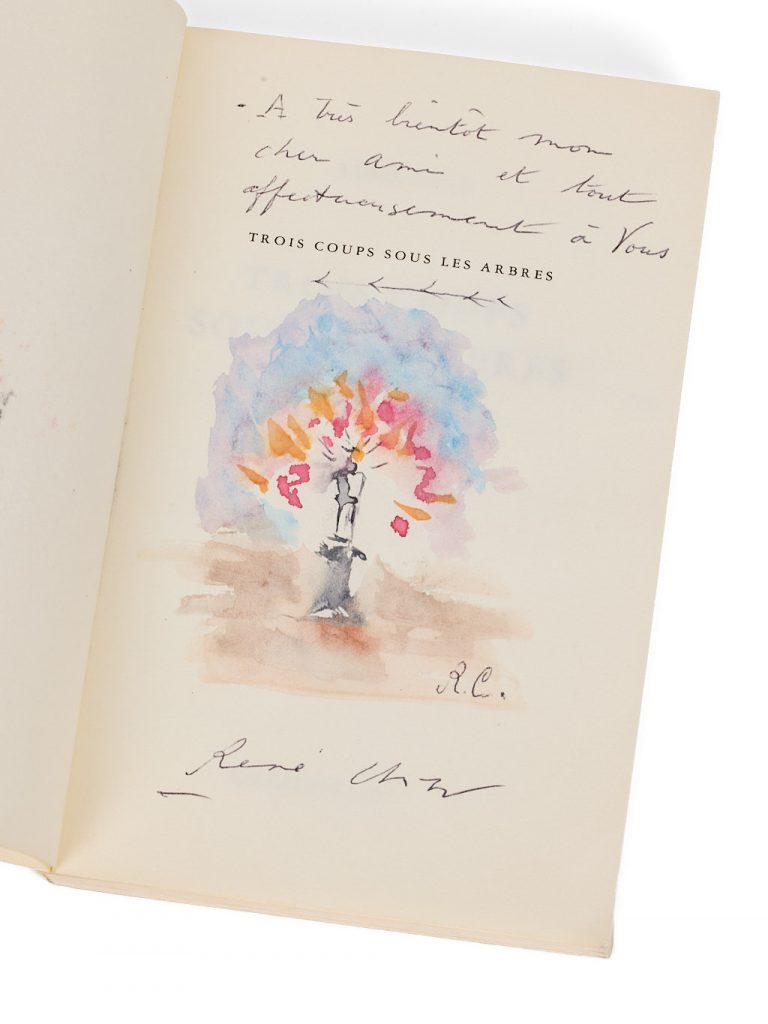 - A très bientôt mon
cher ami et tout
affectueusement à Vous
TROIS COUPS SOUS LES ARBRES
R.C.
René Char